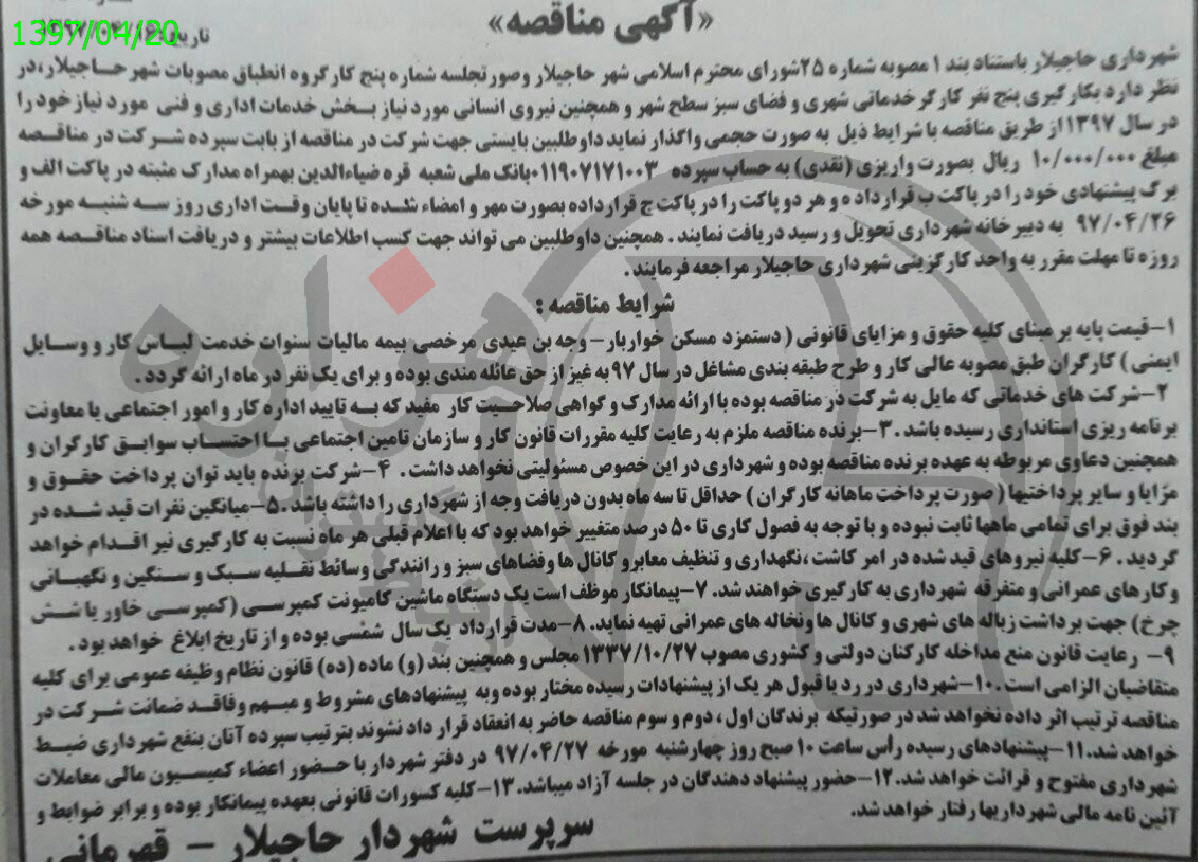 «آگهی مناقصه»
1397/04/20
تاریخ:
شهرداری حاجیلار باستناد بند ۱ مصوبه شماره ۲۵شورای محترم اسلامی شهر حاجیلار وصورتجلسه شماره پنج کارگروه انطباق مصوبات شهر حاجیلار،در
نظر دارد بکارگیری پنج نفر کارگر خدماتی شهری و فضای سبز سطح شهر و همچنین نیروی انسانی مورد نیاز بخش خدمات اداری و فنی مورد نیاز خود را
در سال ۱۳۹۷از طریق مناقصه با شرایط ذیل به صورت حجمی واگذار نماید داوطلبین بایستی جهت شرکت در مناقصه از بابت سپرده شرکت در مناقصه
مبلغ ۱۰/۰۰۰/۰۰۰ ریال بصورت واریزی (نقدی) به حساب سپرده ۰۱۱۹۰۷۱۷۱۰۰۳بانک ملی شعبه قره ضیاءالدین بهمراه مدارک مثبته در پاکت الف و
برگ پیشنهادی خود را در پاکت ب قرارداد ه و هر دو پاکت را در پاکت ج قرارداده بصورت مهر و امضاء شده تا پایان وقت اداری روز سه شنبه مورخه
۹۷/۰۴/۲۶ به دبیر خانه شهرداری تحویل و رسید دریافت نمایند . همچنین داوطلبین می تواند جهت کسب اطلاعات بیشتر و دریافت اسناد مناقصه همه
روزه تا مهلت مقرر به واحد کارگزینی شهرداری حاجیلار مراجعه فرمایند .
شرایط مناقصه :
۱-قیمت پایه بر مبنای کلیه حقوق و مزایای قانونی ( دستمزد مسکن خواربار-وجه بن عیدی مرخصی بیمه مالیات سنوات خدمت لباس کار و وسایل
ایمنی ) کارگران طبق مصوبه عالی کار و طرح طبقه بندی مشاغل در سال ۹۷ به غیر از حق عائله مندی بوده و برای یک نفر در ماه ارائه گردد .
۲-شرکت های خدماتی که مایل به شرکت در مناقصه بوده با ارائه مدارک و گواهی صلاحیت کار مفید که به تایید اداره کار و امور اجتماعی یا معاونت
برنامه ریزی استانداری رسیده باشد .۳-برنده مناقصه ملزم به رعایت کلیه مقررات قانون کار و سازمان تامین اجتماعی با احتساب سوابق کارگران و
همچنین دعاوی مربوطه به عهده برنده مناقصه بوده و شهرداری در این خصوص مسئولیتی نخواهد داشت . ۴-شرکت برنده باید توان پرداخت حقوق و
مزایا و سایر پرداختیها ( صورت پرداخت ماهانه کارگران ) حداقل تا سه ماه بدون دریافت وجه از شهرداری را داشته باشد .۵-میانگین نفرات قید شده در
بند فوق برای تمامی ماهها ثابت نبوده و با توجه به فصول کاری تا ۵۰ درصد متغییر خواهد بود که با اعلام قبلی هر ماه نسبت به کارگیری نیر اقدام خواهد
گردید . ۶-کلیه نیروهای قید شده در امر کاشت ،نگهداری و تنظیف معابرو کانال ها وفضاهای سبز و رانندگی وسائط نقلیه سبک و سنگین و نگهبانی
و کار های عمرانی و متفرقه شهرداری به کار گیری خواهند شد. ۷-پیمانکار موظف است یک دستگاه ماشین کامیونت کمپرسی (کمپرسی خاور یا شش
چرخ ) جهت برداشت زباله های شهری و کانال ها ونخاله های عمرانی تهیه نماید. ۸-مدت قرارداد یک سال شمسی بوده و از تاریخ ابلاغ خواهد بود .
۹- رعایت قانون منع مداخله کارکنان دولتی و کشوری مصوب ۱۳۳۷/۱۰/۲۷ مجلس و همچنین بند (و) ماده (ده) قانون نظام وظیفه عمومی برای کلیه
متقاضیان الزامی است.۱۰-شهرداری در رد یا قبول هر یک از پیشنهادات رسیده مختار بوده وبه پیشنهادهای مشروط و مبهم وفاقد ضمانت شرکت در
مناقصه ترتیب اثر داده نخواهد شد در صورتیکه برندگان اول ، دوم و سوم مناقصه حاضر به انعقاد قرار داد نشوند بترتیب سپرده آنان بنفع شهرداری ضبط
خواهد شد.۱۱-پیشنهادهای رسیده رأس ساعت ۱۰ صبح روز چهارشنبه مورخه ۹۷/۰۴/۲۷ در دفتر شهردار با حضور اعضاء کمیسیون مالی معاملات
شهرداری مفتوح و قرائت خواهد شد.۱۲-حضور پیشنهاد دهندگان در جلسه آزاد میباشد.۱۳-کلیه کسورات قانونی بعهده پیمانکار بوده و برابر ضوابط و
آئین نامه مالی شهرداریها رفتار خواهد شد.
سرپرست شهردار حاجیلار – قهرمانی
هزاره